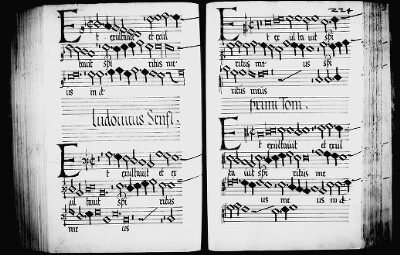 Et exultavit et exul
tavit spi ritus me
us in de
Ludovicus Senfl.
Et exultavit et ex
ul tavit spi ritus
me us
224
Et ex ul ta vit spi
ritus me us spi
ritus meus
primi Toni.
Et exultavit et exul
ta vit spi ritus me
us me us in de